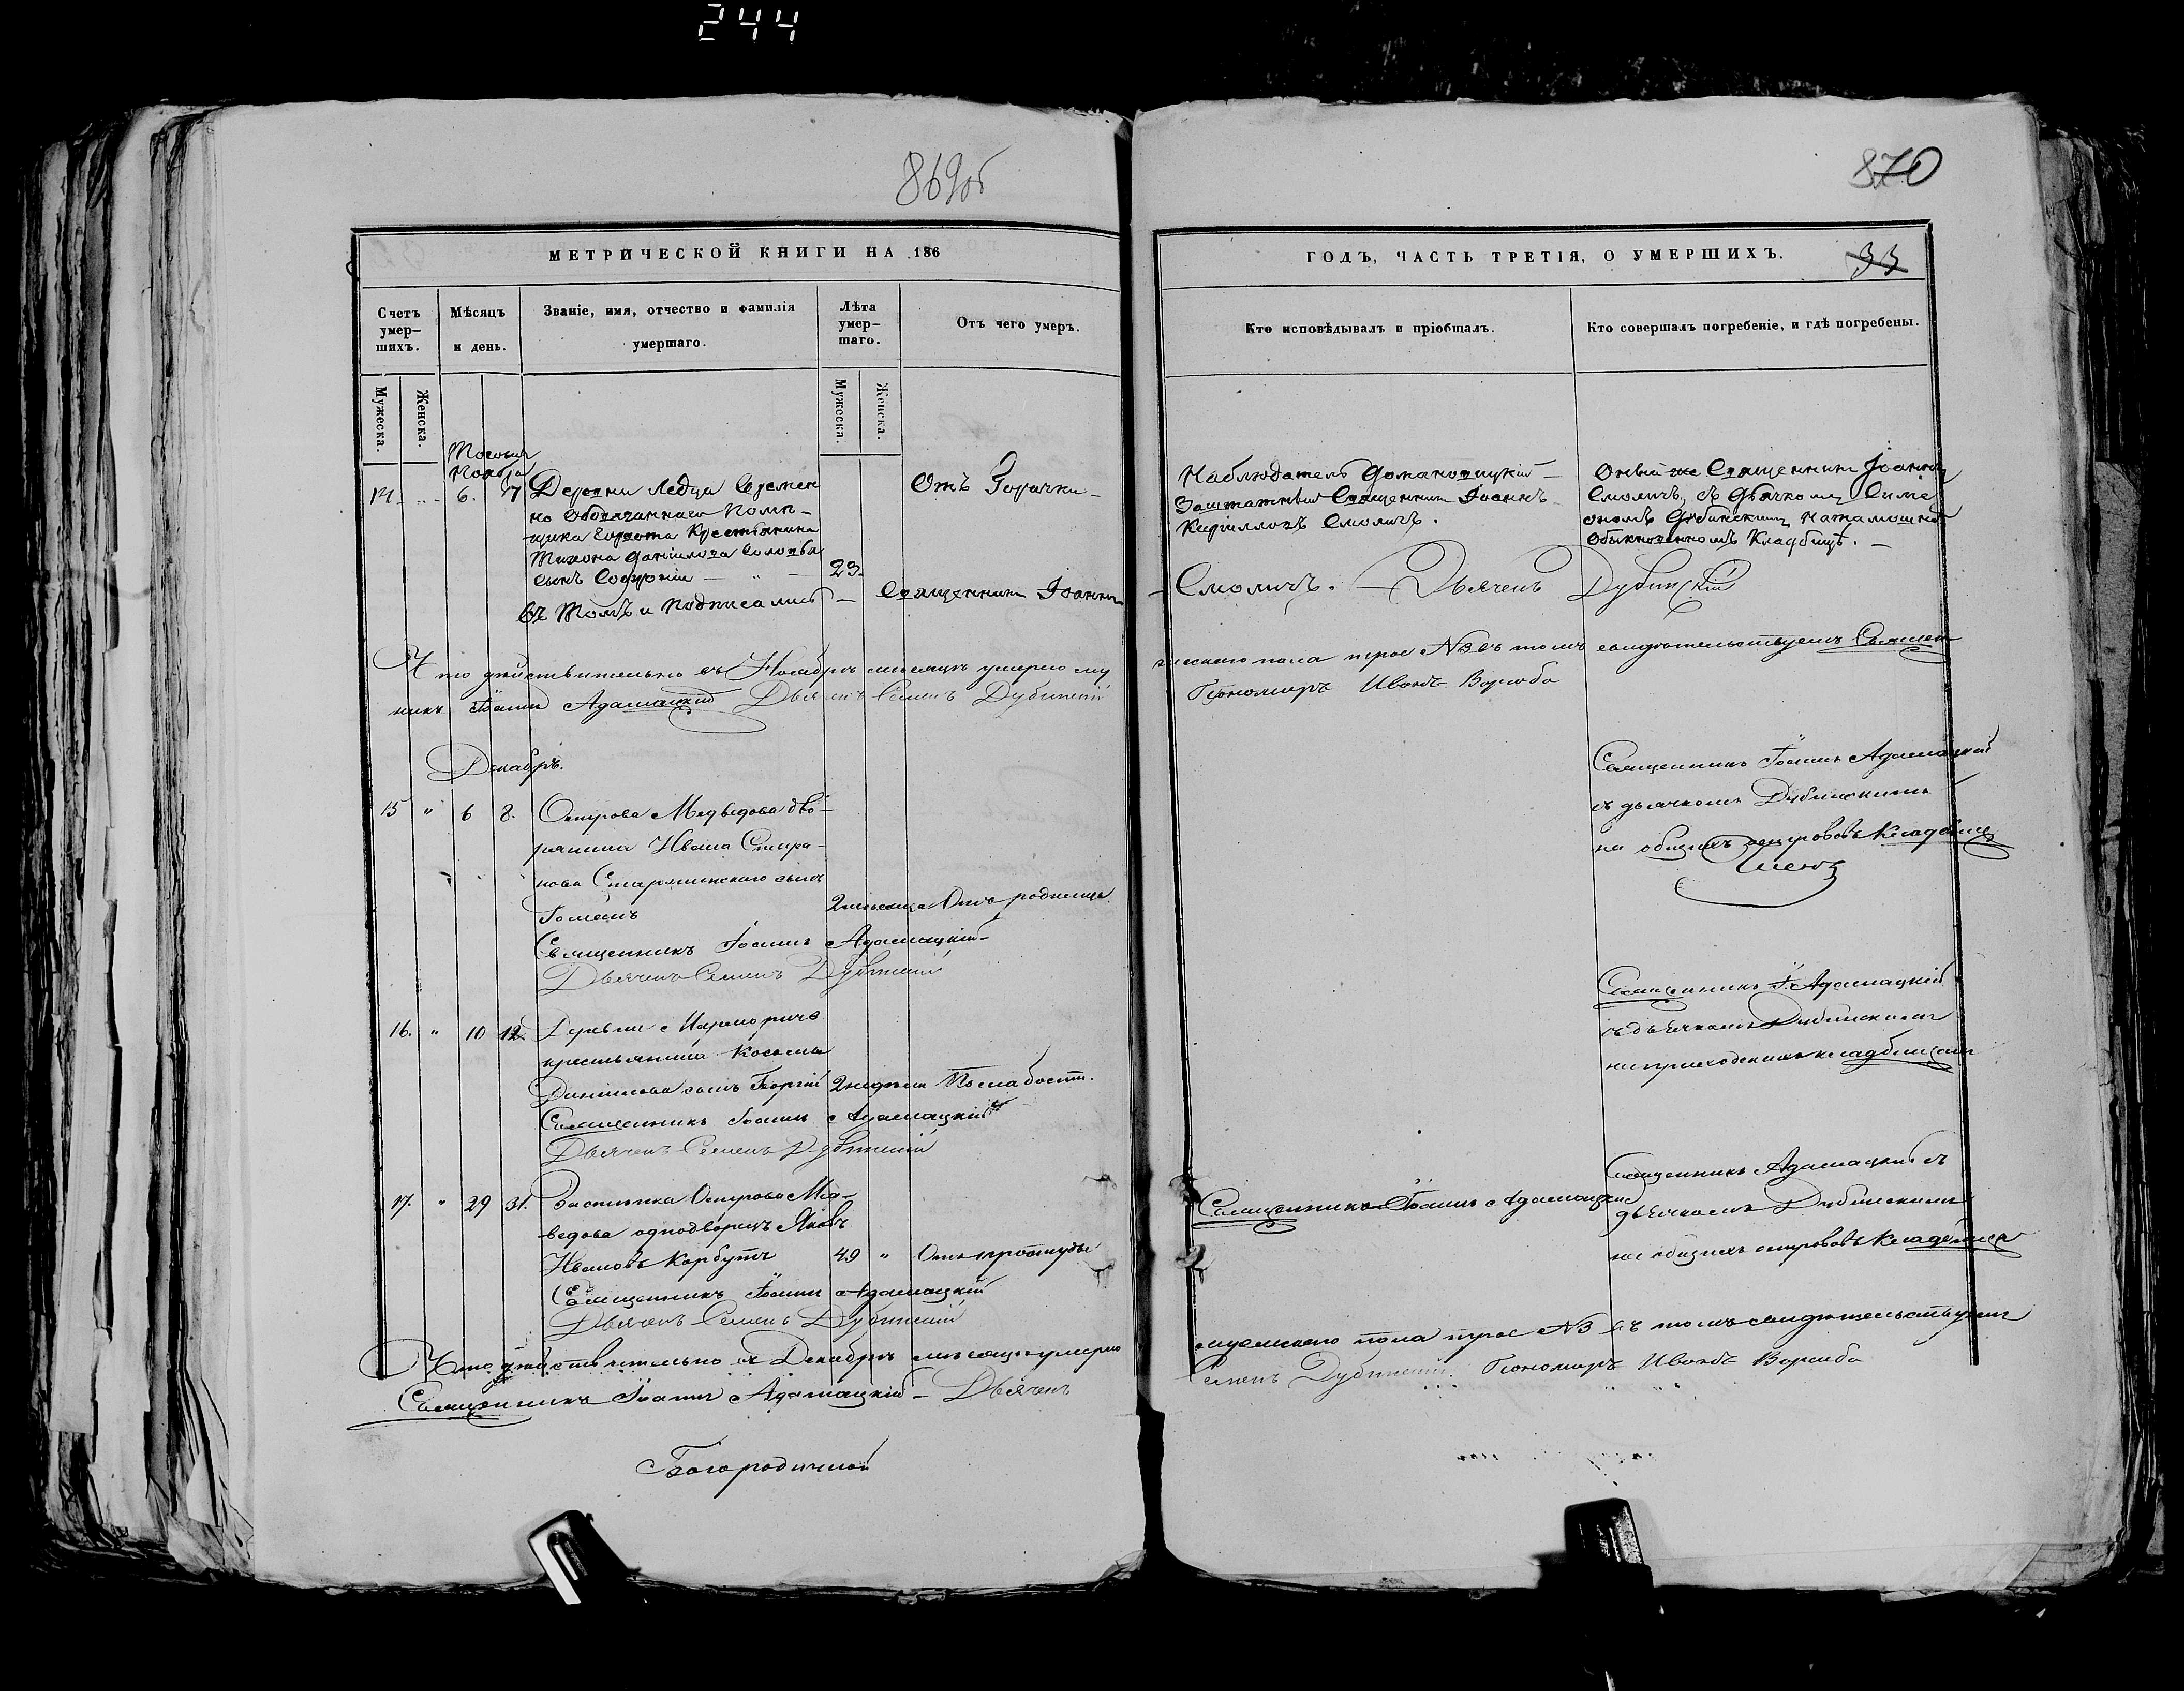 244
869об
870
МЕТРИЧЕСКОЙ КНИГИ НА 186
ГОДЪ, ЧАСТЬ ТРЕТІЯ, О УМЕРШИХЪ.
33
Счетъ умер-
шихъ.
Мѣсяцъ
и день.
Званіе, имя, отчество и фамилія
умершаго.
Лѣта
умер-
шаго.
Отъ чего умеръ.
Кто исповѣдывалъ и пріобщалъ.
Кто совершалъ погребеніе, и гдѣ погребены.
Мужеска.
Женска.
Мужеска.
Женска.
Ноября
6. 7 Деревни Ледца Времен
но Обязаннаго Помѣ-
щика Крестьянина
Тихона Даніилова
сынъ Софроній
23.
Отъ Горячки
въ томъ и подписались – Священникъ Іоаннъ
Наблюдатель Домановицкій
Заштатный Священникъ Іоаннъ
Кирилловъ Смоличъ.
Оный же Священникъ Іоаннъ
Смоличъ, съ дьячкомъ Симе
ономъ Дубинскимъ
Обыкновенномъ Кладбищѣ.
Смоличъ. – Дьячекъ Дубинскій
Что дѣйствительно въ Ноябрѣ мѣсяцѣ умерло му
жескаго пола трое №3 въ томъ свидѣтельствуемъ Священ
никъ Іоаннъ Адамацкій Дьячекъ Семенъ Дубинскій
Пономарь Иванъ Вороба
Декабрь.
15 " 6 8. Острова Медведова дво-
рянина Ивана
сынъ
Романъ
2 мѣсяца Отъ родимца
Священникъ Іоаннъ Адамацкій
Дьячекъ Семенъ Дубинскій
Священникъ Іоаннъ Адамацкій
съ дьячкомъ Дубинскимъ
на общемъ острововъ кладбищѣ
16. " 10 12. Деревни
крестьянина Косьмы
Даніилова сынъ Георгій 2 недѣли По слабости.
Священникъ Іоаннъ Адамацкій
Дьячекъ Семенъ Дубинскій
Священникъ І. Адамацкій
съ дьячкомъ Дубинскимъ
на приходскомъ кладбищѣ
17. " 29 31. Застѣнка Острова Мед-
ведова однодворецъ Яковъ
Ивановъ Корбутъ 49 " Отъ простуды
Священникъ Іоаннъ Адамацкій
Дьячекъ Семенъ Дубинскій
Священникъ Іоаннъ Адамацкій
Священникъ Адамацкій съ
дьячкомъ Дубинскимъ
на общемъ острововъ кладбищѣ
Что дѣйствительно въ Декабрѣ мѣсяцѣ умерло
мужескаго пола трое №3 въ томъ свидѣтельствуемъ
Священникъ Іоаннъ Адамацкій – Дьячекъ
Семенъ Дубинскій. Пономарь Иванъ Вороба
Богородичной